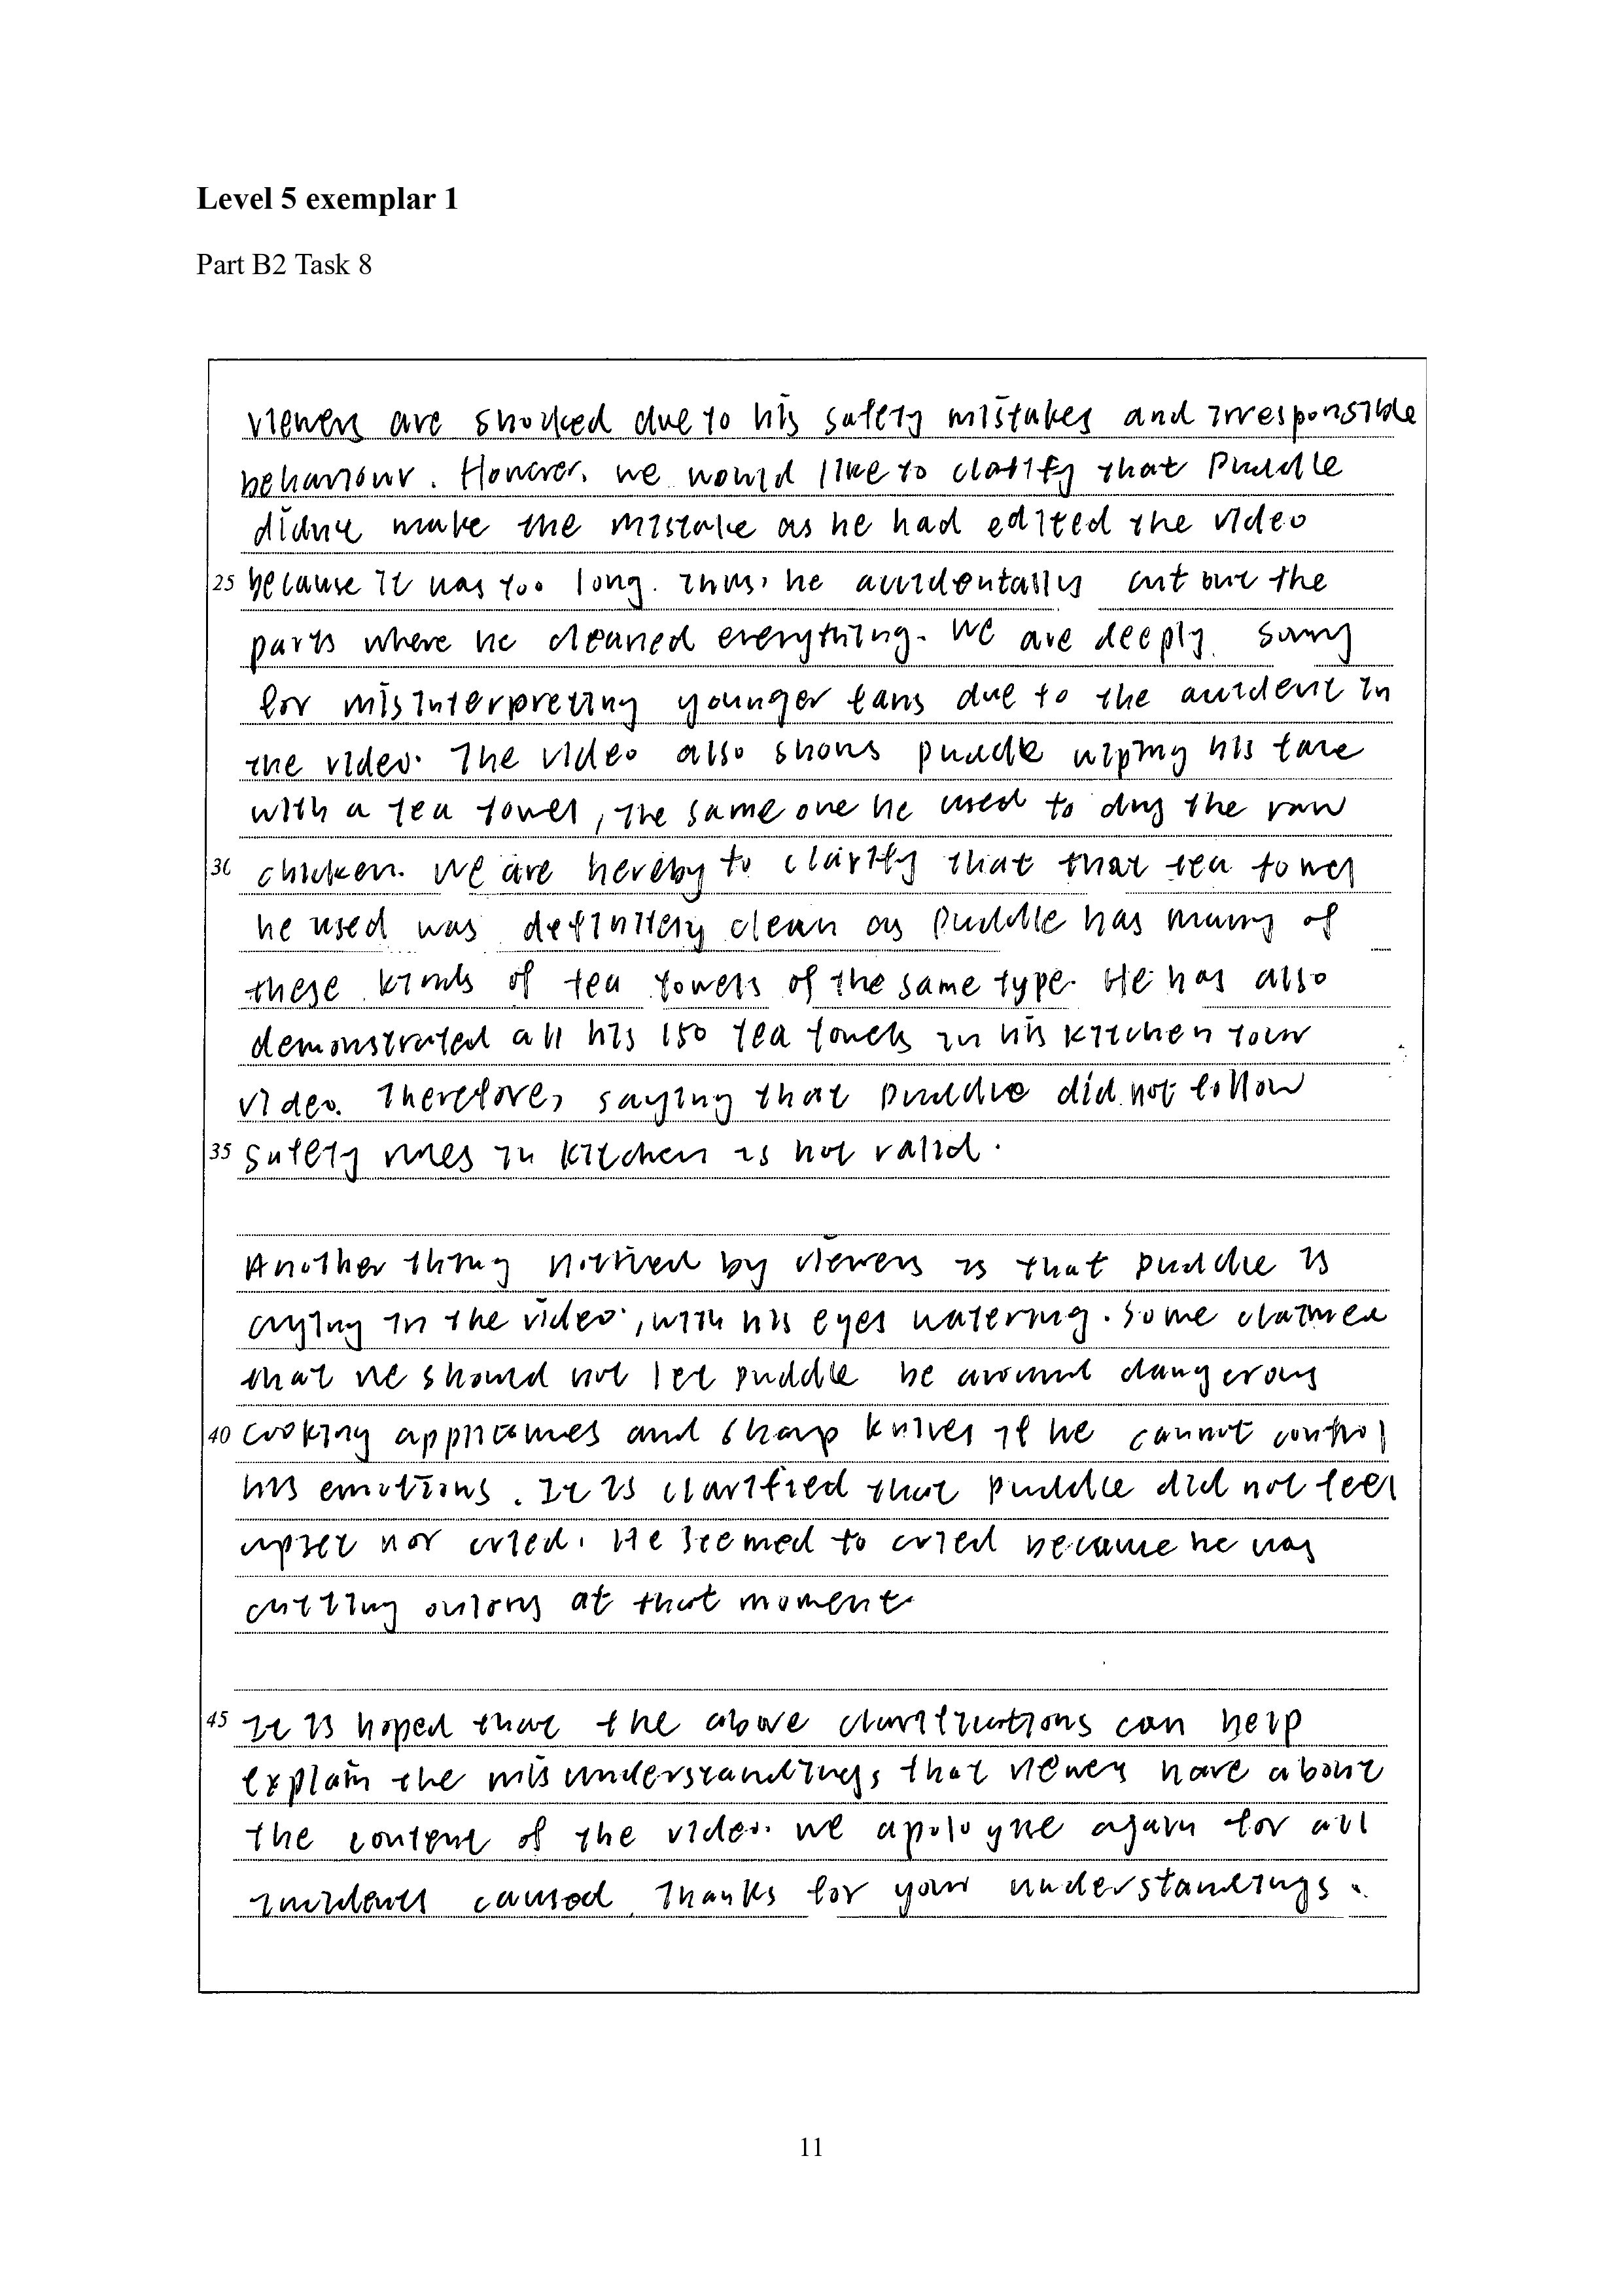 Level 5 exemplar 1
Part B2 Task 8
viewers are shocked due to his safety mistakes and irresponsible
behaviour. However, we would like to clarify that Puddle
didn't make the mistake as he had edited the video
25 because it was too long. Thus, he accidentally cut out the
parts where he cleaned everything. We are deeply sorry
for misinterpreting younger fans due to the accident in
the video. The video also shows puddle wiping his face
with a tea towel, the same one he used to dry the raw
30 chicken. We are hereby to clarify that that tea towel
he used was definitely clean as Puddle has many of
these kinds of tea towels of the same type. He has also
demonstrated all his 150 tea towels in his kitchen tour
video. Therefore, saying that puddle did not follow
35 safety rules in kitchen is not valid.
Another thing noticed by viewers is that puddle is
crying in the video, with his eyes watering. Some claimed
that we should not let puddle be around dangerous
40 cooking appliances and sharp knives if he cannot control
his emotions. It is clarified that puddle did not feel
upset nor cried. He seemed to cried because he was
cutting onions at that moment.
45 It is hoped that the above clarifications can help
explain the misunderstandings that viewers have about
the content of the video. We apologise again for all
incidents caused. Thanks for your understandings.
11